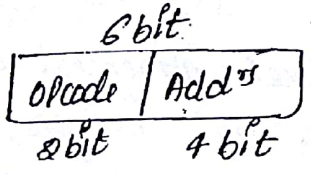 6 bit
Opcode Addrs
2 bit 4 bit